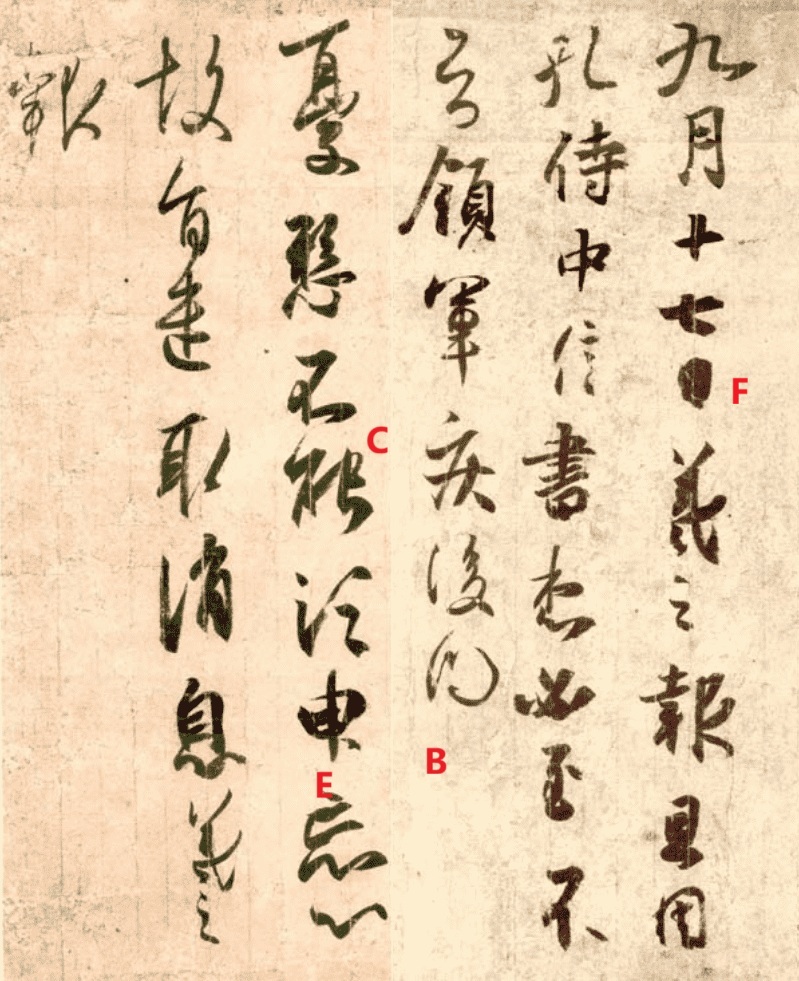 九月十七日羲之報且因
F
孔侍中信書想必至不
知領軍疾後問
B
C
憂懸不能須臾忘心
E
故旨遣取消息羲之
報